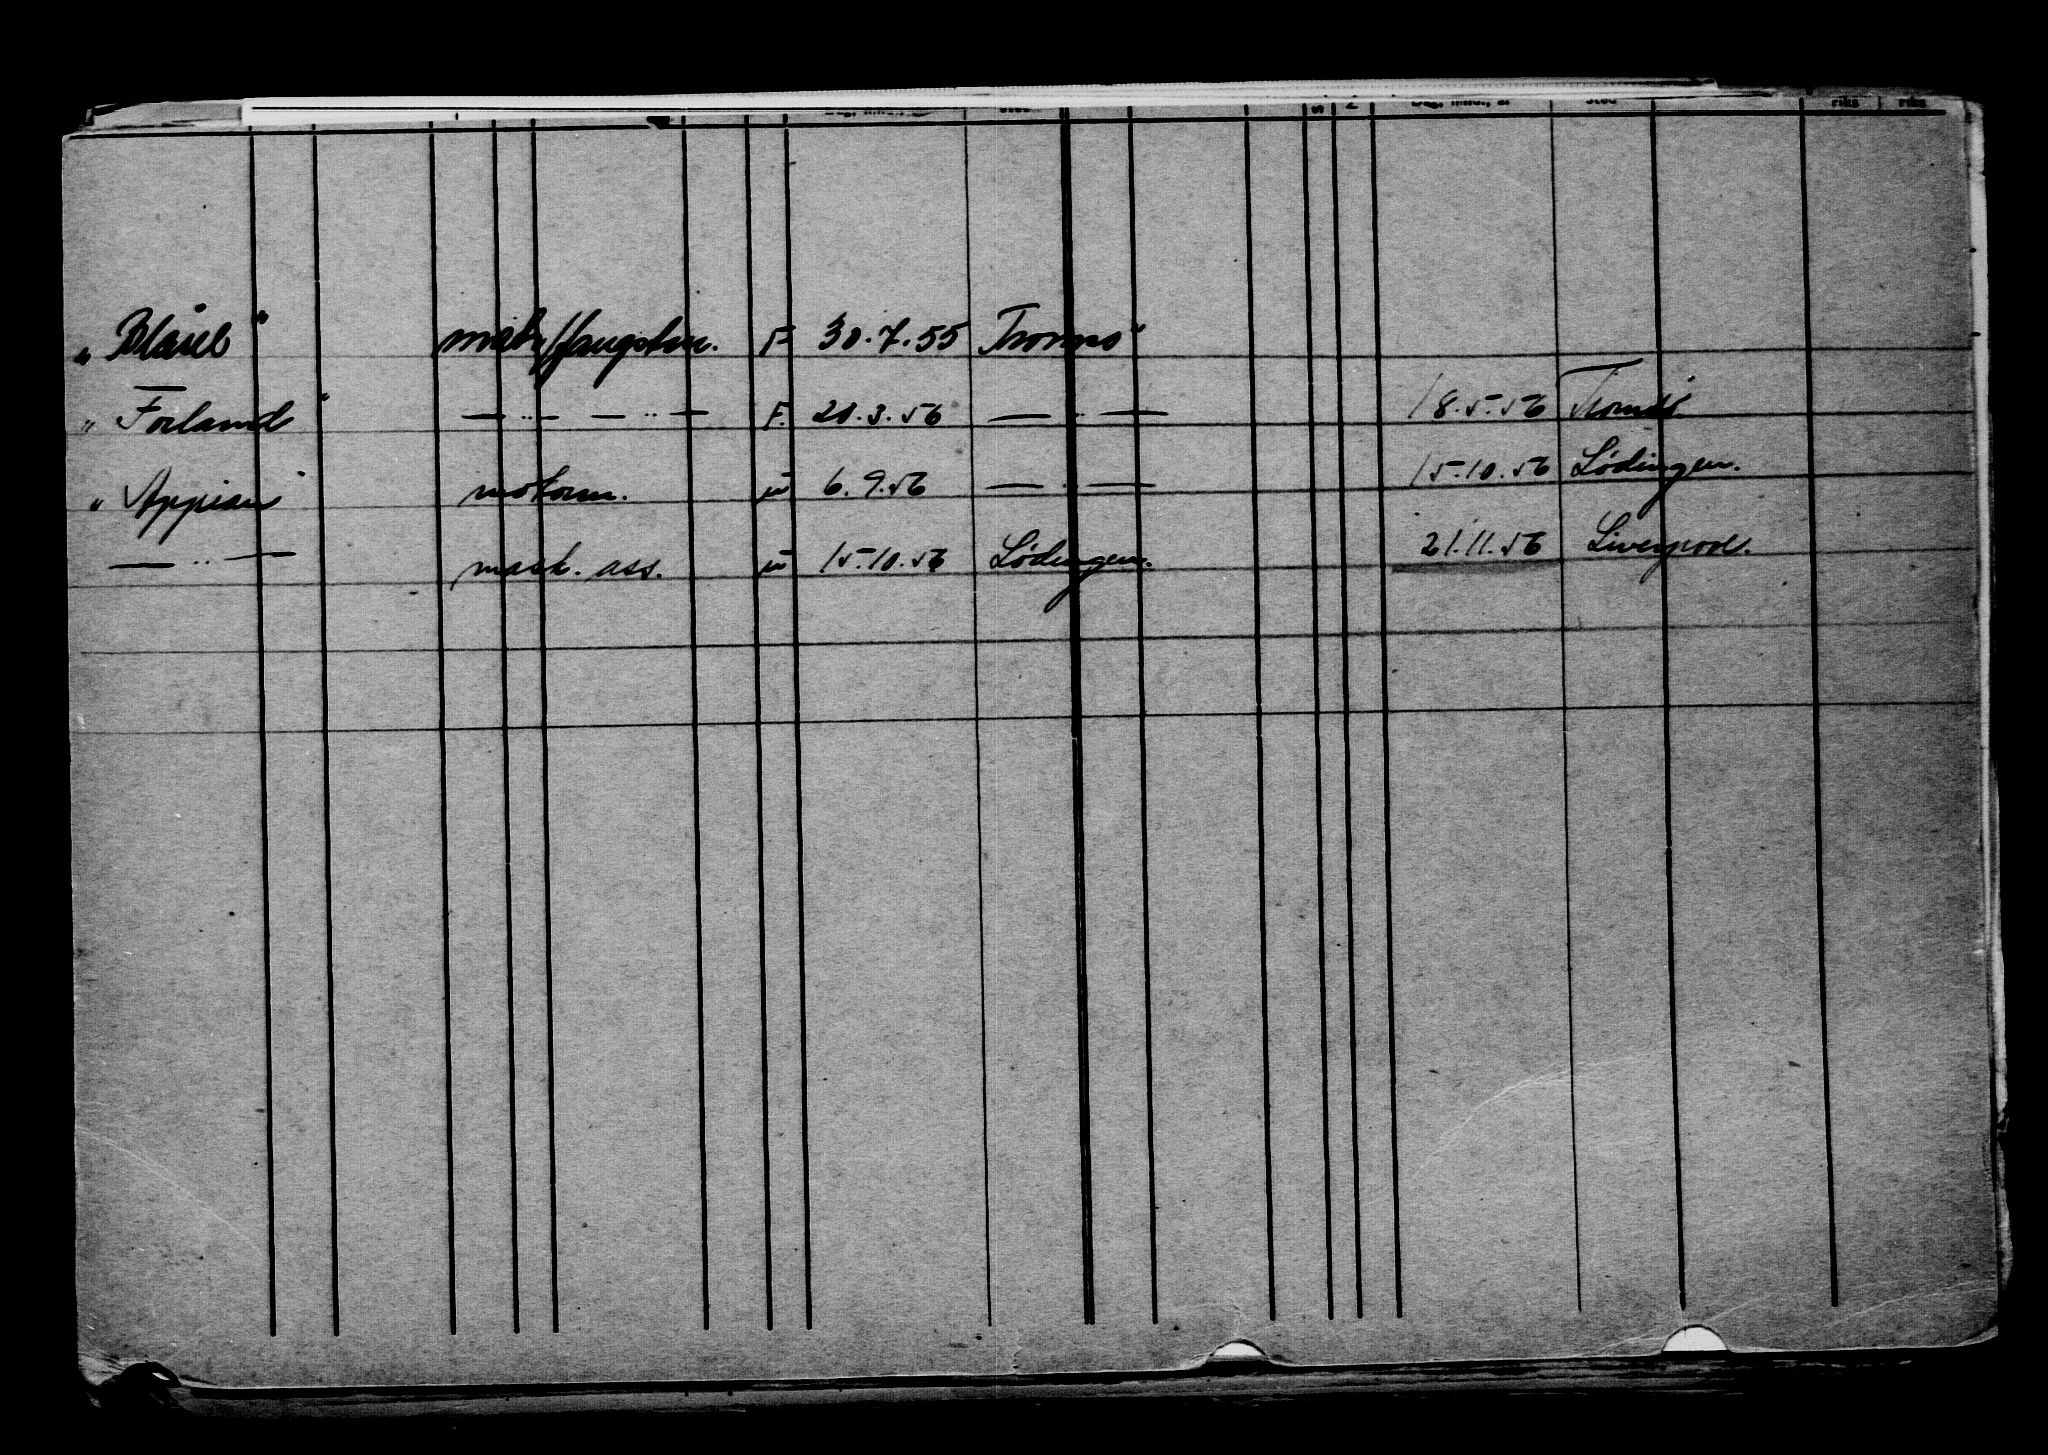 sted riks riks
"Blåsel" F 30.7.55 Tromsø
"Forland" — .. — — .. — F. 20.3.56 — .. — 18.5.56 Tromsø.
"Appian" motorm. u 6.9.56 — .. — 15.10.56 Lødingen.
— .. — mask. ass. u 15.10.56 Lødingen. 21.11.56 Liverpool.